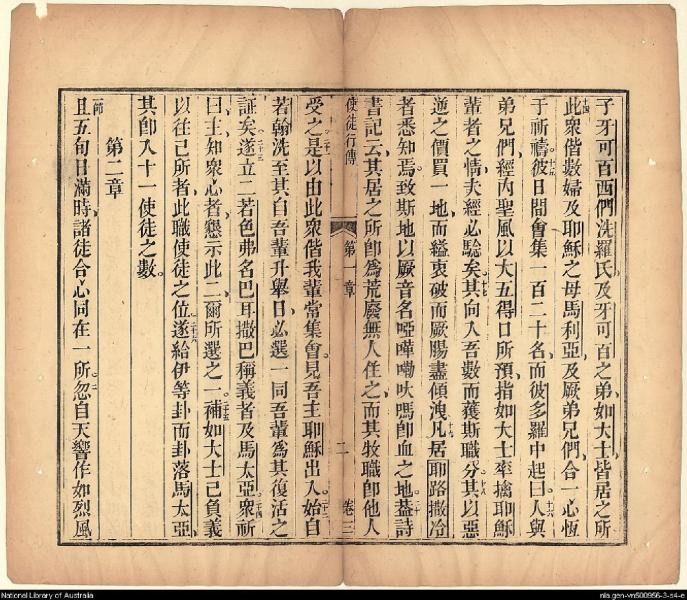 子牙可百西們洗羅氏及牙可百之弟如大士皆居之所
十四此衆偕數婦及耶穌之母馬利亞及厥弟兄們合一心恆
于祈禱十五彼日間會集一百二十名而彼多羅中起曰十六人與
弟兄們經內聖風以大五得口所預指如大士率擒耶穌
輩者之情夫經必騐矣十七其向入吾數而獲斯職分十八其以惡
逆之價買一地而縊衷破而厥腸盡傾洩十九凡居耶路撒冷
者悉知焉致斯地以厥音名啞嘩嘞吠嗎卽血之地二十蓋詩
書記云其居之所卽爲荒廢無人住之而其牧職卽他人
使徒行傳 第一章 二 卷三
受之二十一是以由此衆偕我輩常集會見吾主耶穌出入二十二始自
若翰洗至其自吾輩升舉日必選一同吾輩爲其復活之
証矣二十三遂立二若色弗名巴耳撒巴稱義者及馬太亞二十四衆祈
曰主知衆心者懇示此二爾所選之一二十五補如大士已負義
以往己所者此職使徒之位二十六遂給伊等卦而卦落馬太亞
其卽入十一使徒之數
第二章
一節且五旬日滿時諸徒合心同在一所二忽自天響作如烈風
National Library of Australia
nla.gen-vn500956-3-s4-e